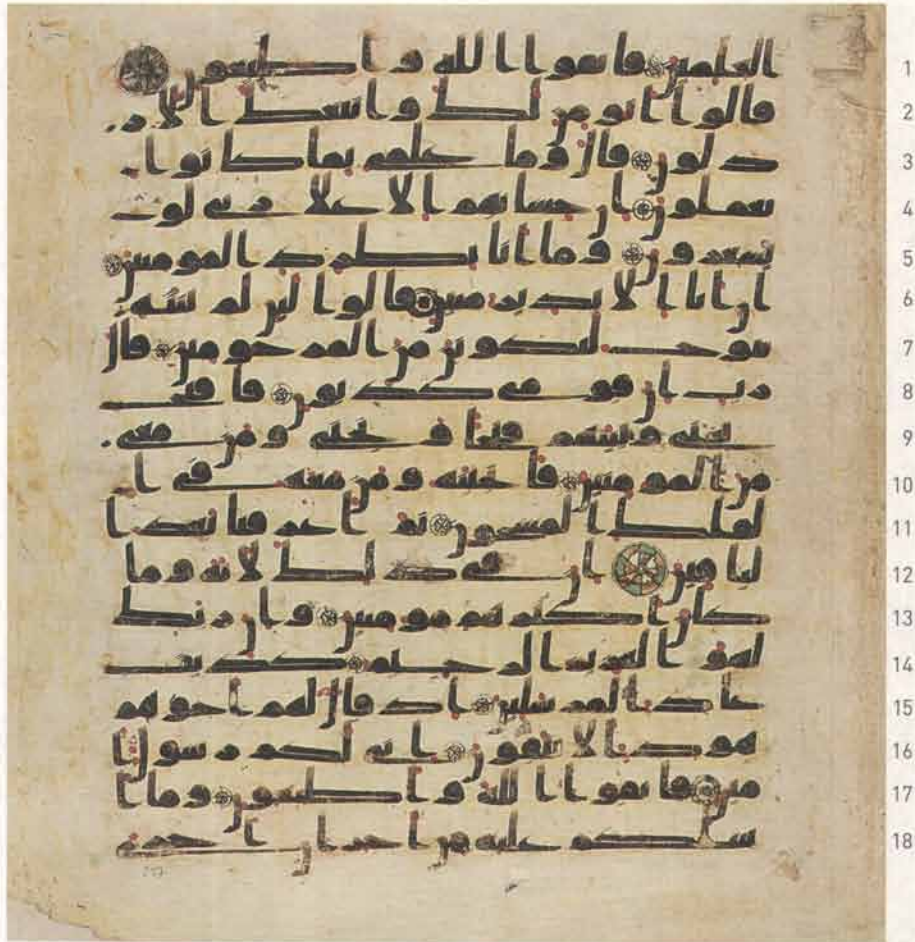 العلمين فاتقوا الله واطيعون 1
قالوا انومن لك واتبعك الار 2
ذلون قال وما علمى بما كانوا 3
يعملون ان حسابهم الا على ربى لو 4
تشعرون وما انا بطرد المومنين 5
ان انا الا نذير مبين قالوا لين لم تنته 6
ينوح لتكونن من المرجومين قال 7
رب ان قومى كذبون فافتح 8
بينى وبينهم فتحا ونجنى ومن معى 9
من المومنين فانجينه ومن معه فى ا 10
لفلك المشحون ثم اغرقنا بعد ا 11
لباقين ان فى ذلك لاية وما 12
كان اكثرهم مومنين وان ربك 13
لهو العزيز الرحيم كذبت 14
عاد المرسلين اذ قال لهم اخوهم 15
هود الا تتقون انى لكم رسول ا 16
مين فاتقوا الله واطيعون وما ا 17
سلكم عليه من اجر ان اجرى 18